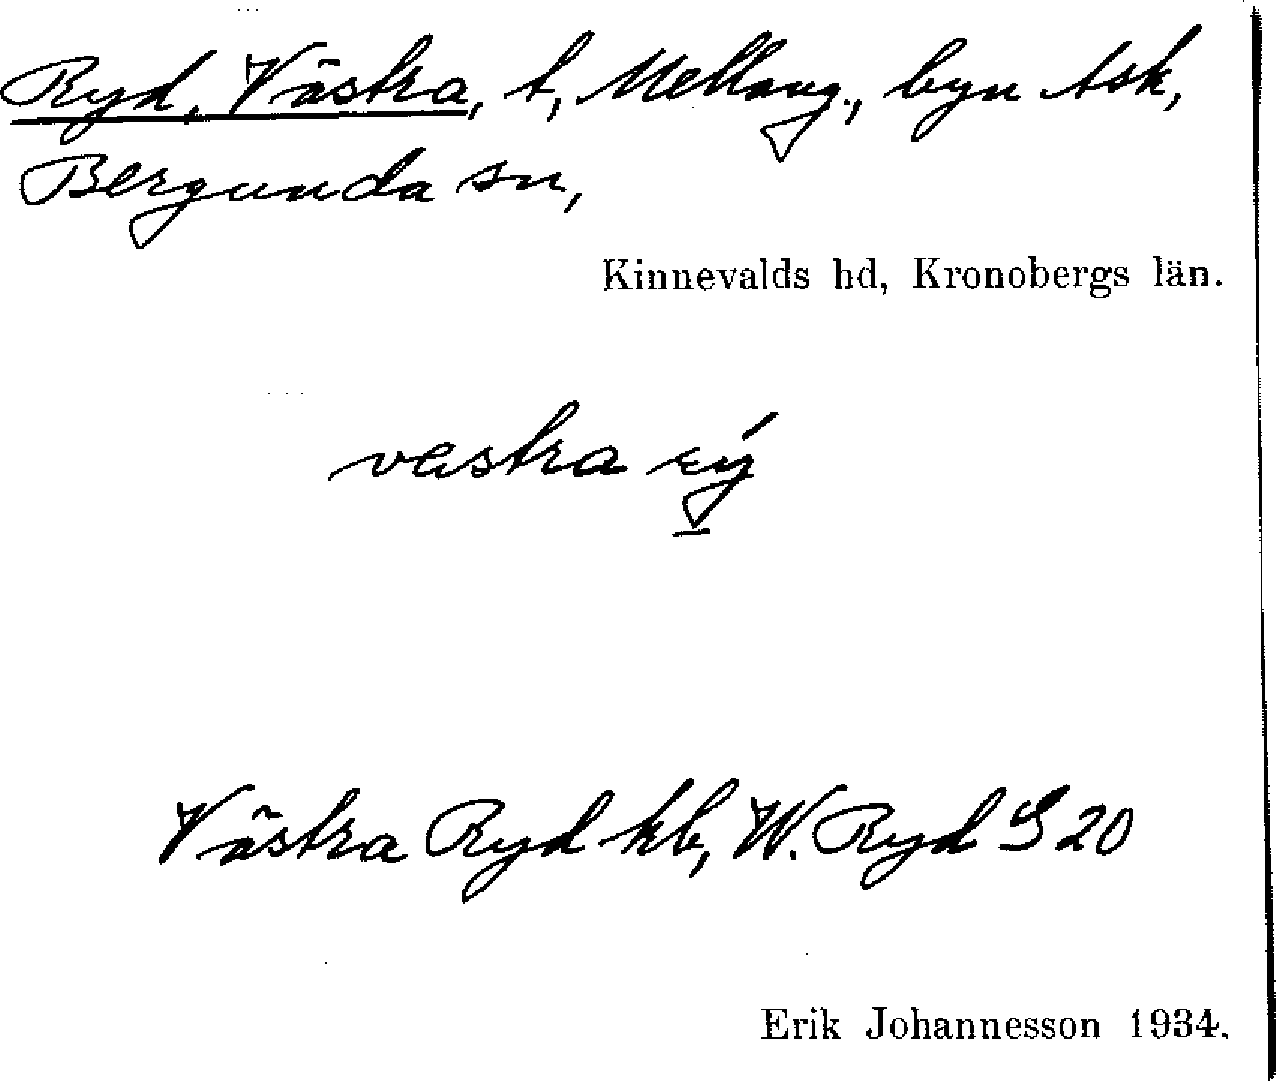 Ryd, Västra, t, Mellang., byn Ask,
Bergunda sn,
Kinnevalds hd, Kronobergs län.
vastra rý
Västra Ryd hb, W. Ryd S 20
Erik Johannesson 1934.